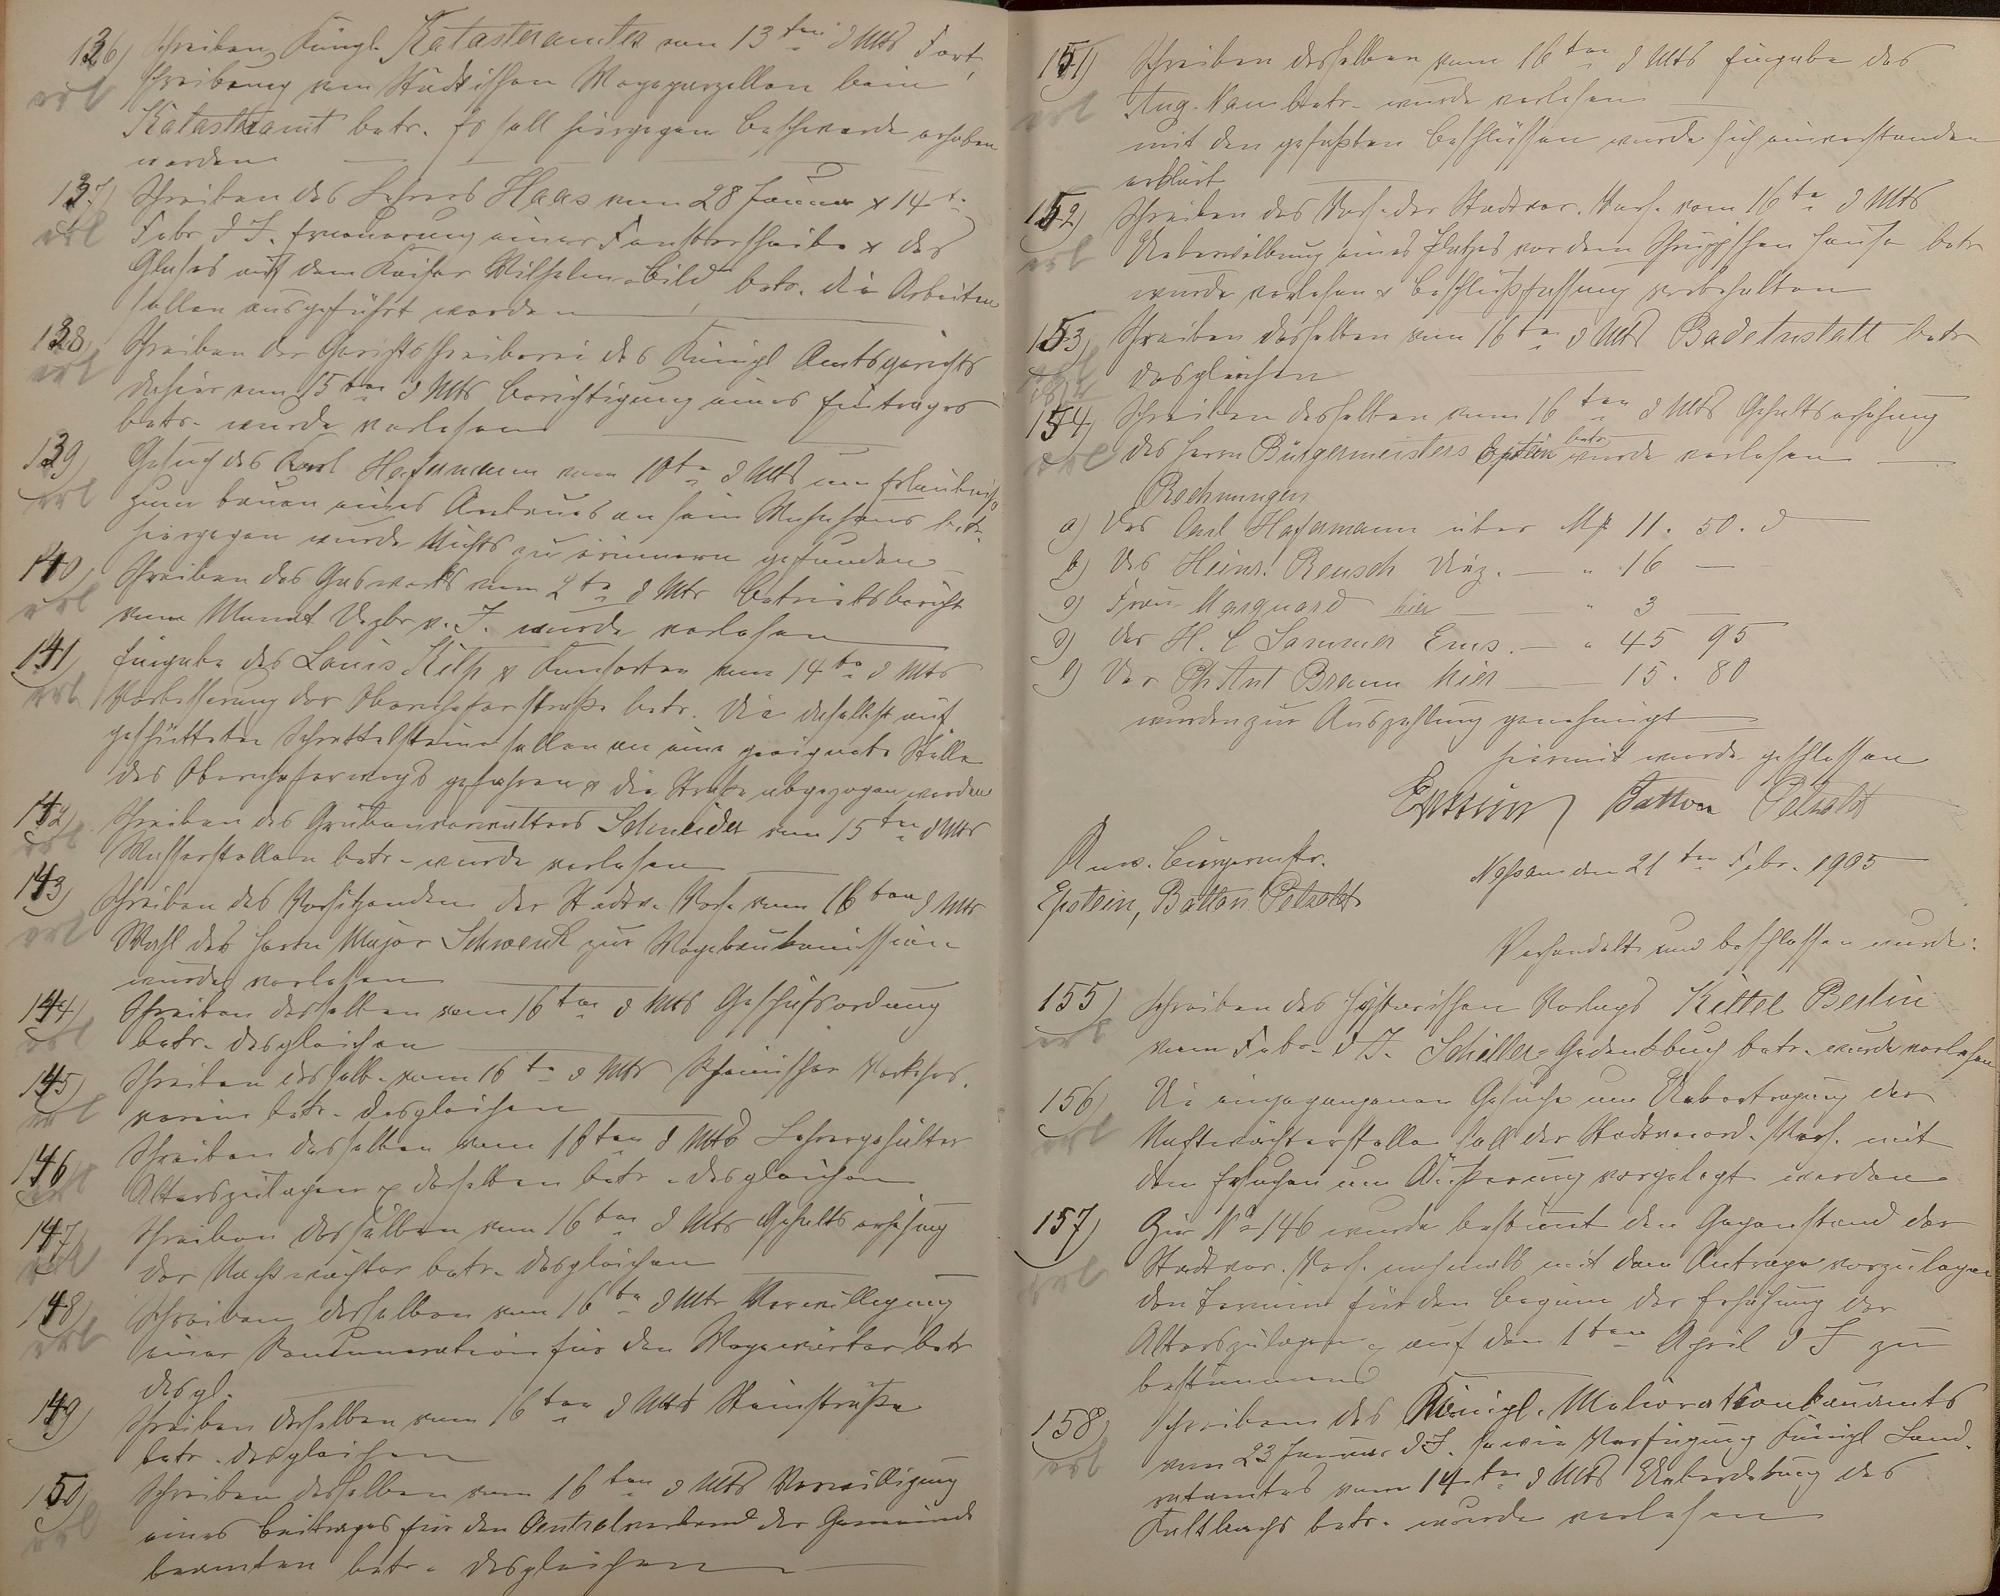 136) Schreiben Königl. Katasteramtes vom 13ten d Mts Fort
erl
schreibung von Städtischen Wegeparzellen beim
Katasteramt betr. Es soll hiergegen Beschwerde erhoben
werden
137) Schreiben des Lehrers Haas vom 28 Januar & 14t.
erl
Febr d J. Erneuerung einer Fensterscheibe & des
Glases auf dem Kaiser Wilhelm-Bild betr. die Arbeiten
sollen ausgeführt werden
138) Schreiben der Gerichtsschreiberei des Königl Amtsgerichts
erl
dahier vom 15ten d Mts Berichtigung eines Eintrages
betr. wurde verlesen
139) Gesuch des Karl Hafermann vom 10ten d Mts um Erlaubniß
erl
zum bauen eines Anbaues an sein Wohnhaus betr.
hiergegen wurde Nichts zu erinnern gefunden
140) Schreiben des Gaswerks vom 2ten d Mts Betriebsbericht
erl
vom Monat Dezbr v. J. wurde verlesen
141) Eingabe des Louis & Konsorten vom 14ten d Mts
erl
Verbesserung der Obernhoferstraße betr. Die daselbst auf
geschütteten Schottelsteine sollen an eine geeignete Stelle
des Obernhoferwegs gefahren & die Straße abgezogen werden
142) Schreiben des Grubenverwalters Schneider vom 15ten d Mts
erl
Wasserstollen betr. wurde verlesen
143) Schreiben des Vorsitzenden der Stadtv. Vers. vom 16ten d Mts
erl
Wahl des Herrn Major Schwenk zur Wegebaukomission
wurde verlesen
144) Schreiben desselben vom 16ten d Mts Geschäftsordnung
erl
betr. desgleichen
145) Schreiben desselb. vom 16ten d Mts Rheinischer Verkehrs.
erl
verein betr. desgleichen
146) Schreiben desselben vom 16ten d Mts Lehrergehälter
erl
Alterszulagen & derselben betr. desgleichen
147) Schreiben desselben vom 16ten d Mts Gehaltserhöhung
erl
der Nachtwächter betr. desgleichen
148) Schreiben desselben vom 16ten d Mts Verwilligung
erl
einer Remuneration für den Wegewärter betr
desgl.
149) Schreiben desselben vom 16ten d Mts Steinstraße
betr. desgleichen
150) Schreiben desselben vom 16ten d Mts Verwilligung
erl
eines Beitrages für den Centralverband der Gemeinde
beamten betr. desgleichen
151) Schreiben desselben vom 16ten d Mts Eingabe des
erl
Aug. betr. wurde verlesen
mit den gefaßten Beschlüssen wurde sich einverstanden
erklärt
152) Schreiben des Vors. der Stadtver. Vers. vom 16ten d Mts
erl
Ueberwölbung eines Platzes vor dem Hause betr
wurde verlesen & Beschlußfassung vorbehalten
153) Schreiben desselben vom 16ten d Mts Badeanstalt betr
erl
desgleichen
154) Schreiben desselben vom 16ten d Mts Gehaltserhöhung
erl
des Herrn Bürgermeisters Epstein betr wurde verlesen
Rechnungen
a) Des Carl Hafermann über Mk 11. 50. d
b) Des Heinr. Reusch Diez. — " 16 —
c) Frau Marquard hier — " 3 —
d) der H. C Sommer Ems. — " 45 95
e) Der Ph Ant Braun hier — 15. 80
wurden zur Auszahlung genehmigt
hiermit wurde geschlossen
Epstein Batton Petzoldt
Anw. Bürgermstr.
Epstein, Batton Petzoldt
Nassau den 21ten Febr. 1905
Verhandelt und beschlossen wurde:
155) Schreiben des historischen Verlags Kittel Berlin
erl
vom Febr. d J. Schiller-Gedenkbuch betr. wurde verlesen
156) Die eingegangenen Gesuche um Uebertragung der
erl
Nachtwächterstelle soll der Stadtverord. Vers. mit
dem Ersuchen um Äußerung vorgelegt werden
157) Zur No 146 wurde bestimt den Gegenstand der
erl
Stadtver. Vers. nochmals mit dem Antrage vorzulegen
den Termin für den Beginn der Erhöhung der
Alterszulagen auf den 1ten April d J zu
bestimmen
158) Schreiben des Königl. Meliorationbauamts
erl
vom 23 Januar d J. sowie Verfügung Königl Land.
ratamtes vom 14ten d Mts Ueberdekung des
Kaltbachs betr. wurde verlesen